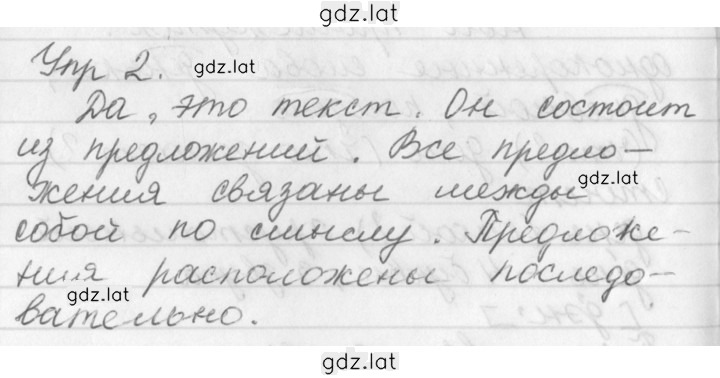 gdz.lat
Упр 2. gdz.lat
Да, это текст. Он состоит
из предложений. Все предло-
gdz.lat
жения связаны между
собой по смыслу. Предложе-
ния расположены последо-
gdz.lat
вательно.
gdz.lat